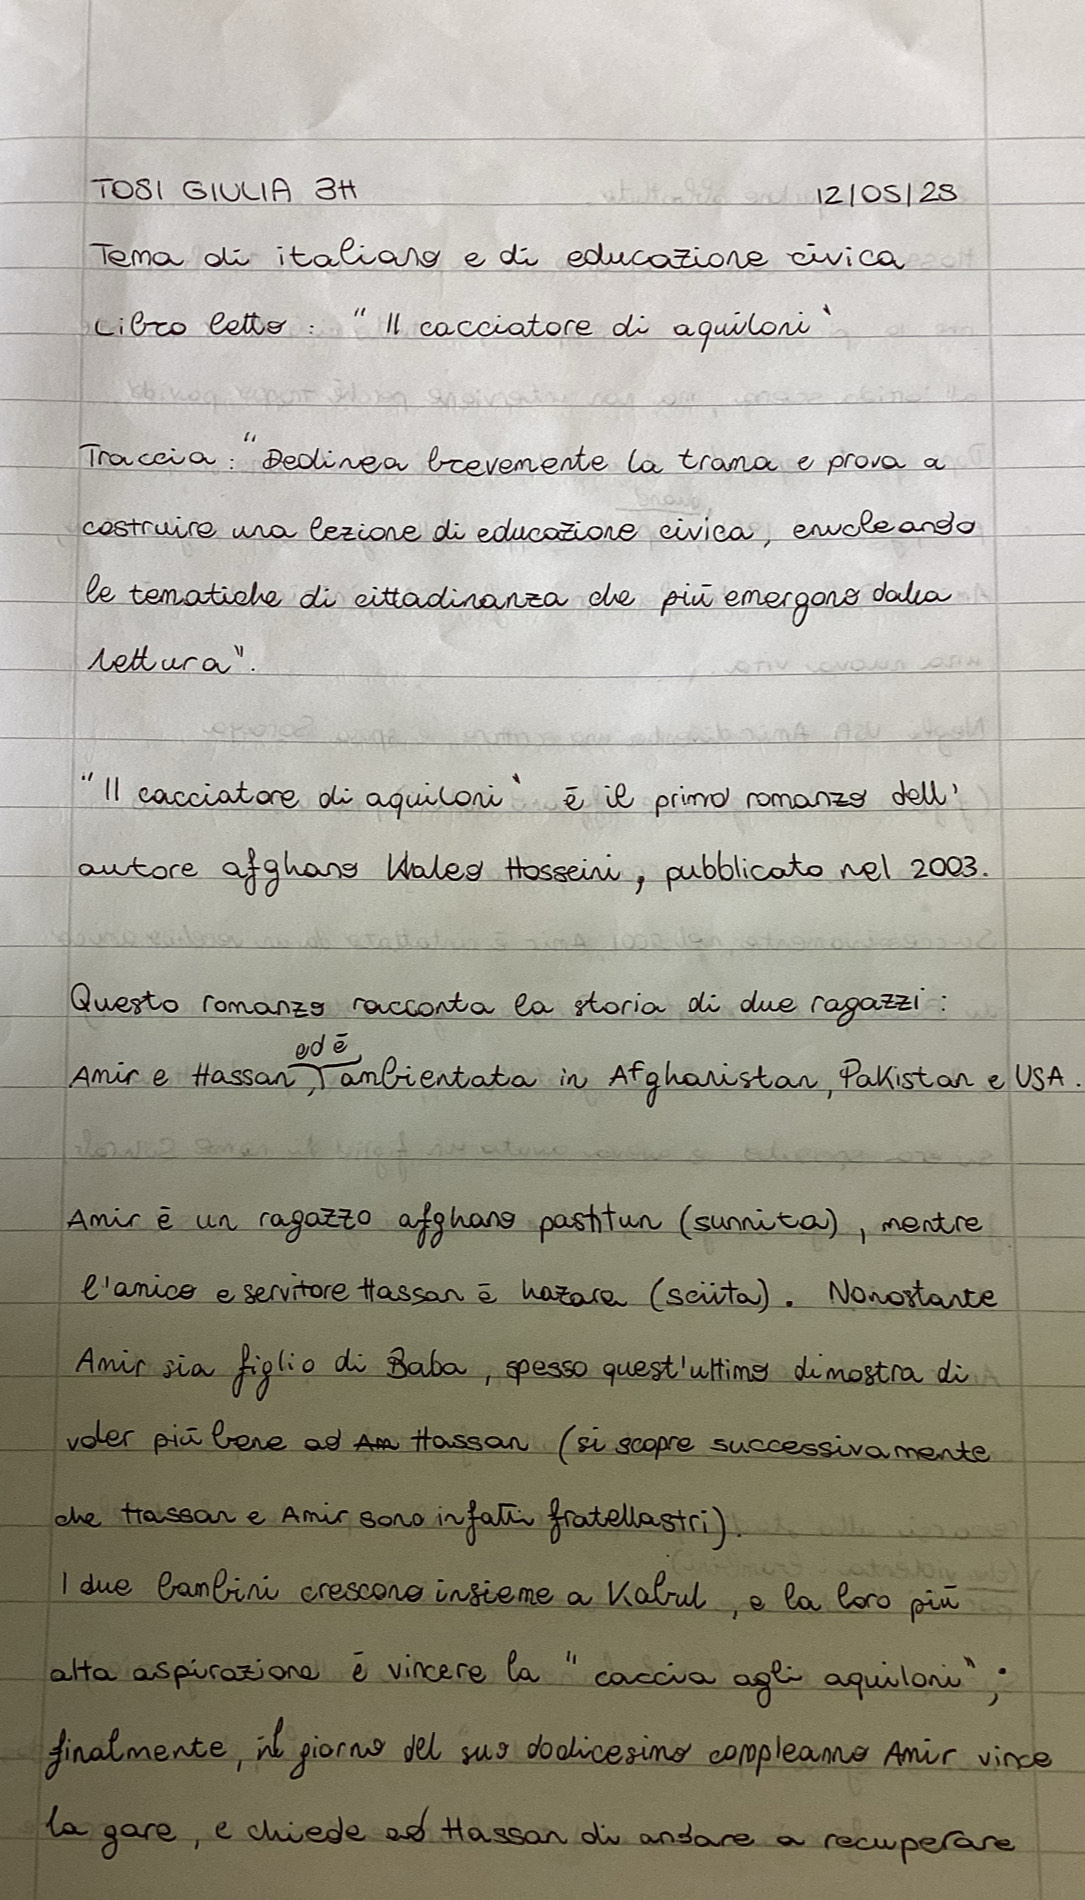 TOSI GIULIA 3H 12/05/25
Tema di italiano e di educazione civica
Libro letto : " Il cacciatore di aquiloni "
Traccia : " Delinea brevemente la trama e prova a
costruire una lezione di educazione civica, enucleando
le tematiche di cittadinanza che più emergono dalla
lettura".
" Il cacciatore di aquiloni " è il primo romanzo dell'
autore afghano Khaled Hosseini, pubblicato nel 2003.
Questo romanzo racconta la storia di due ragazzi :
Amir e Hassan, ed è ambientata in Afghanistan, Pakistan e USA.
Amir è un ragazzo afghano pashtun (sunnita), mentre
l'amico e servitore Hassan è hazara (sciita). Nonostante
Amir sia figlio di Baba, spesso quest'ultimo dimostra di
voler più bene ad Am Hassan (si scopre successivamente
che Hassan e Amir sono infatti fratellastri).
I due bambini crescono insieme a Kabul, e la loro più
alta aspirazione è vincere la " caccia agli aquiloni ";
finalmente, il giorno del suo dodicesimo compleanno Amir vince
la gare, e chiede ad Hassan di andare a recuperare